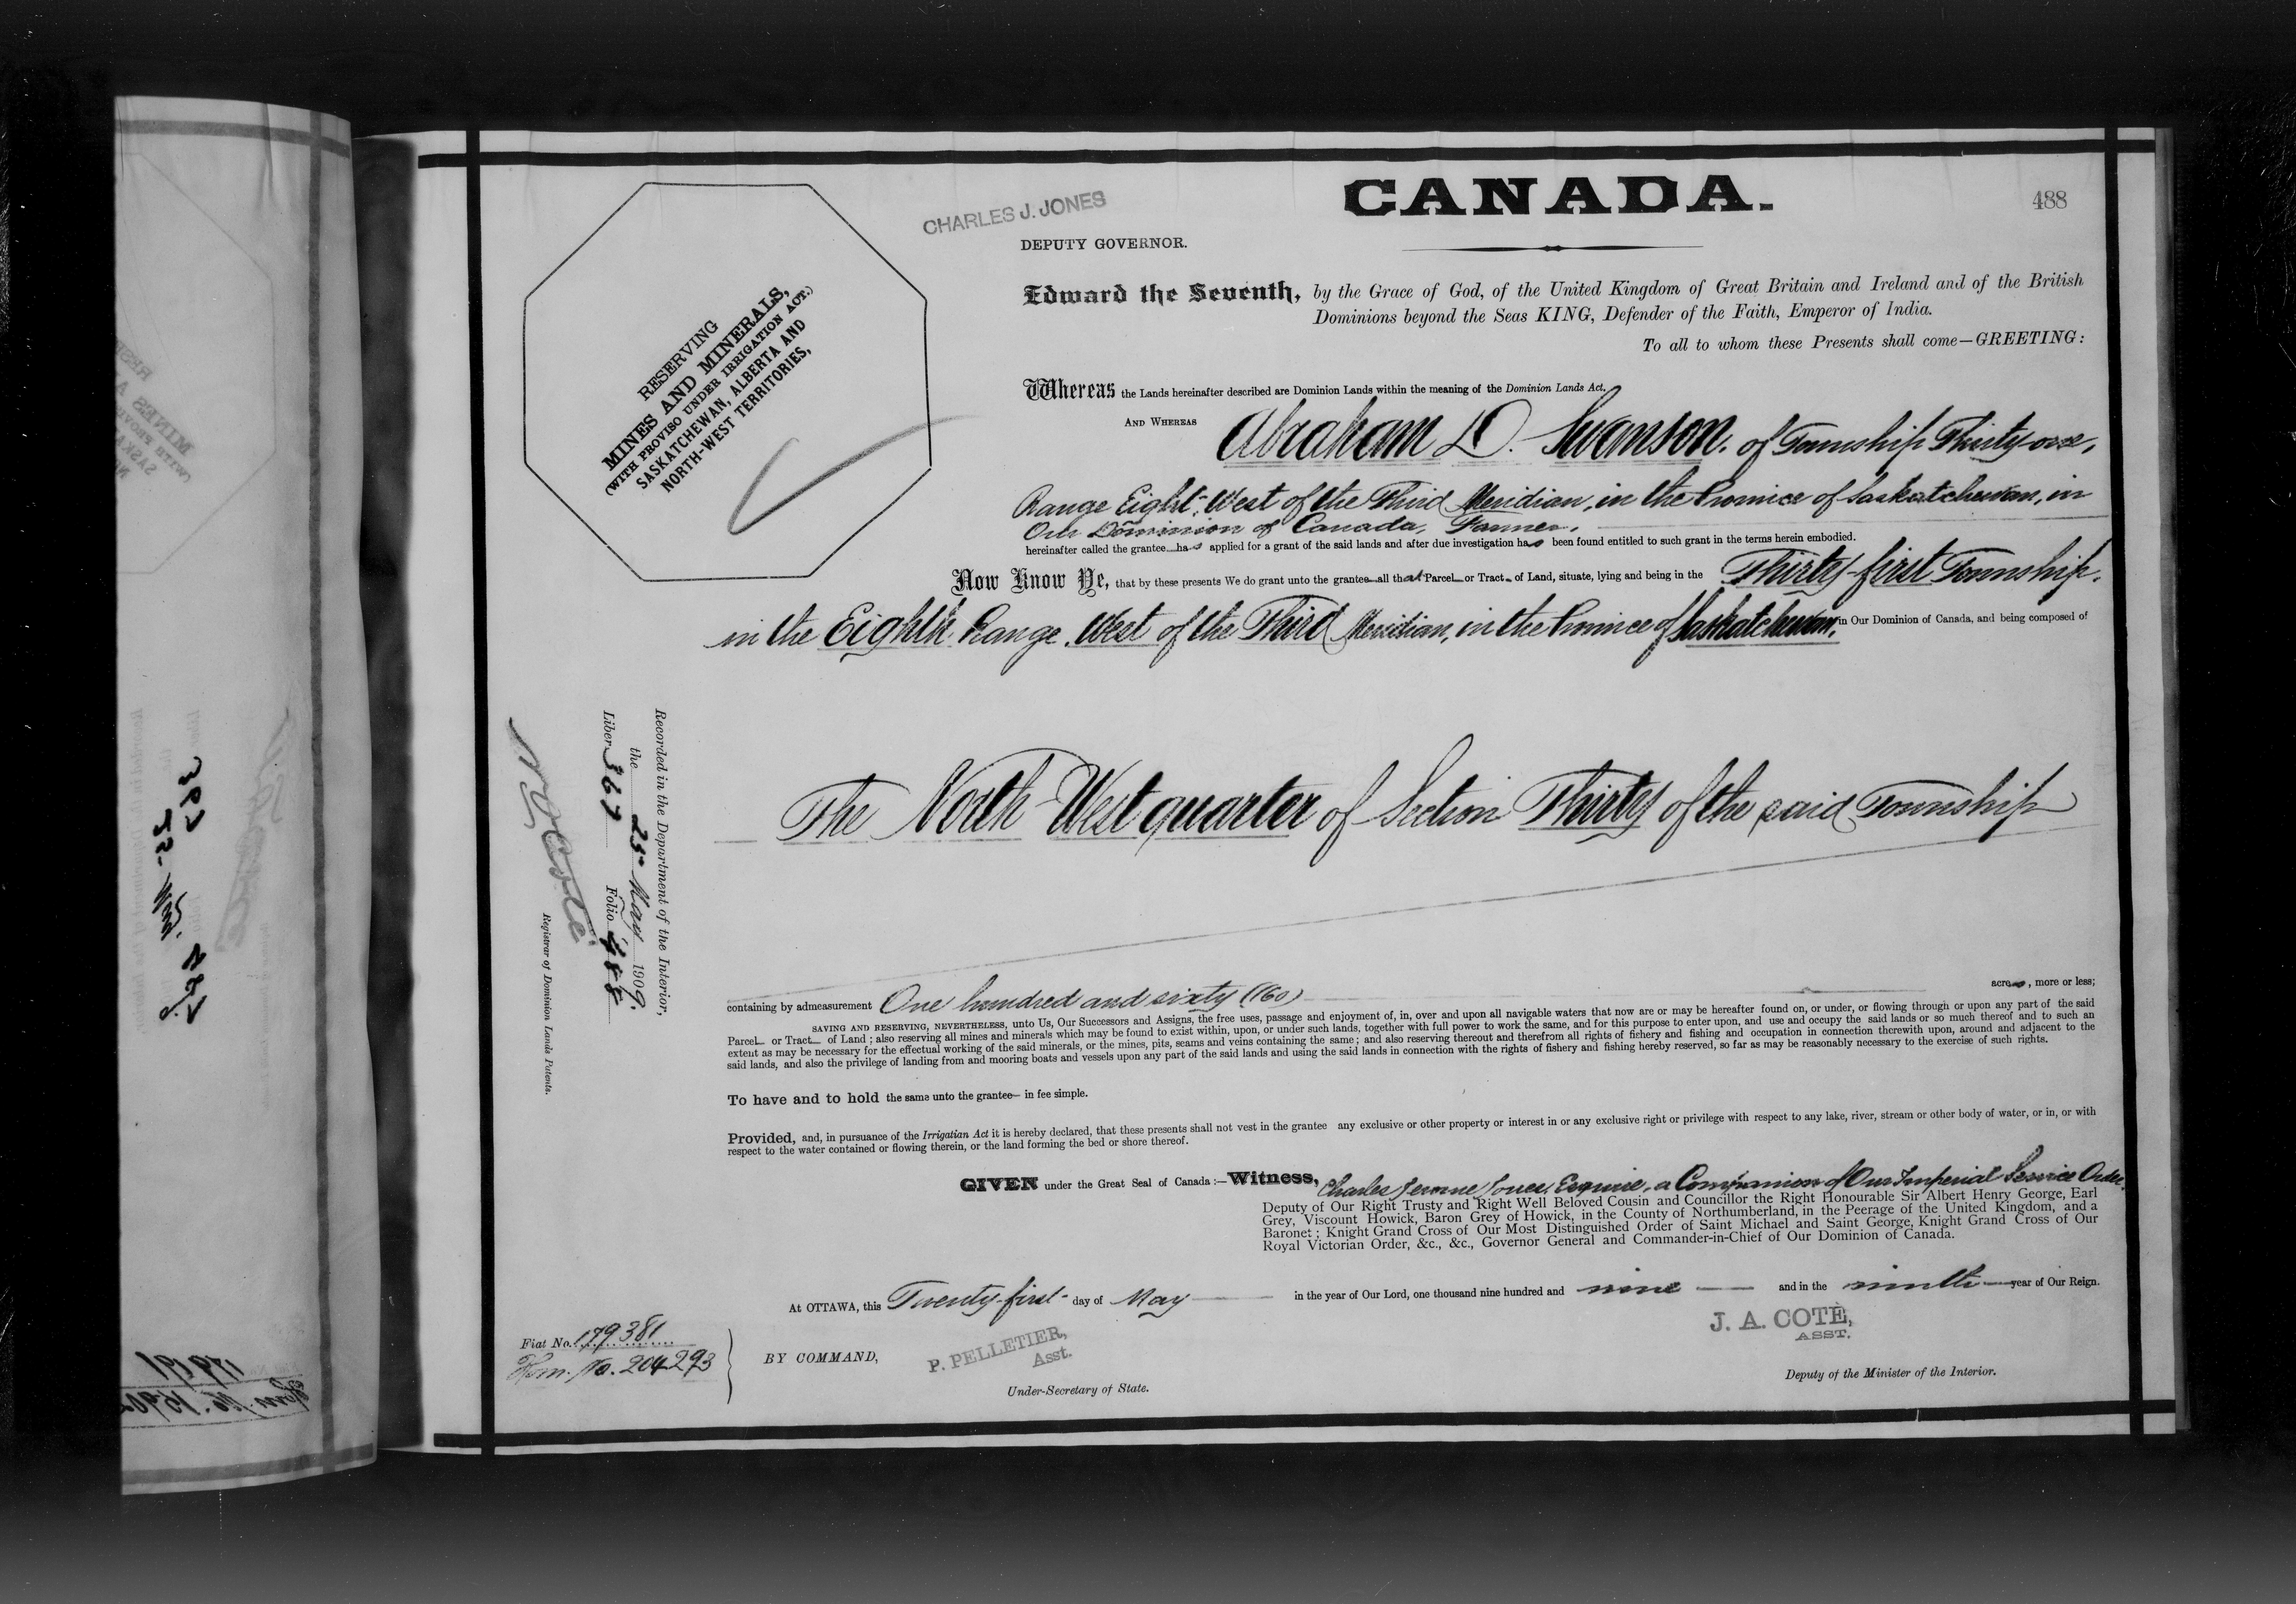 CANADA.
488
CHARLES J. JONES
DEPUTY GOVERNOR.
Edward the Seventh, by the Grace of God, of the United Kingdom of Great Britain and Ireland and of the British
Dominions beyond the Seas KING, Defender of the Faith, Emperor of India.
To all to whom these Presents shall come—GREETING:
RESERVING
MINES AND MINERALS,
(WITH PROVISO UNDER IRRIGATION ACT.)
SASKATCHEWAN, ALBERTA AND
NORTH-WEST TERRITORIES,
Whereas the Lands hereinafter described are Dominion Lands within the meaning of the Dominion Lands Act.
AND WHEREAS Abraham D. Swanson, of Township Thirty-one,
Range Eight, West of the Third Meridian, in the Province of Saskatchewan, in
Our Dominion of Canada, Farmer,
hereinafter called the grantee has applied for a grant of the said lands and after due investigation has been found entitled to such grant in the terms herein embodied.
Now Know Ye, that by these presents We do grant unto the grantee all that Parcel or Tract of Land, situate, lying and being in the Thirty-first Township,
in the Eighth Range, West of the Third Meridian, in the Province of Saskatchewan, in Our Dominion of Canada, and being composed of
The North West quarter of Section Thirty of the said Township
containing by admeasurement One hundred and sixty (160) acres, more or less;
SAVING AND RESERVING, NEVERTHELESS, unto Us, Our Successors and Assigns, the free uses, passage and enjoyment of, in, over and upon all navigable waters that now are or may be hereafter found on, or under, or flowing through or upon any part of the said
Parcel or Tract of Land; also reserving all mines and minerals which may be found to exist within, upon, or under such lands, together with full power to work the same, and for this purpose to enter upon, and use and occupy the said lands or so much thereof and to such an
extent as may be necessary for the effectual working of the said minerals, or the mines, pits, seams and veins containing the same; and also reserving thereout and therefrom all rights of fishery and fishing and occupation in connection therewith upon, around and adjacent to the
said lands, and also the privilege of landing from and mooring boats and vessels upon any part of the said lands and using the said lands in connection with the rights of fishery and fishing hereby reserved, so far as may be reasonably necessary to the exercise of such rights.
To have and to hold the same unto the grantee— in fee simple.
Provided, and, in pursuance of the Irrigatian Act it is hereby declared, that these presents shall not vest in the grantee any exclusive or other property or interest in or any exclusive right or privilege with respect to any lake, river, stream or other body of water, or in, or with
respect to the water contained or flowing therein, or the land forming the bed or shore thereof.
GIVEN under the Great Seal of Canada:—Witness, Charles Jerome Jones, Esquire, a Companion of Our Imperial Service Order,
Deputy of Our Right Trusty and Right Well Beloved Cousin and Councillor the Right Honourable Sir Albert Henry George, Earl
Grey, Viscount Howick, Baron Grey of Howick, in the County of Northumberland, in the Peerage of the United Kingdom, and a
Baronet; Knight Grand Cross of Our Most Distinguished Order of Saint Michael and Saint George, Knight Grand Cross of Our
Royal Victorian Order, &c., &c., Governor General and Commander-in-Chief of Our Dominion of Canada.
At OTTAWA, this Twenty-first day of May in the year of Our Lord, one thousand nine hundred and nine and in the ninth year of Our Reign.
J. A. COTÉ,
ASST.
Deputy of the Minister of the Interior.
BY COMMAND,
P. PELLETIER,
Asst.
Under-Secretary of State.
Fiat No. 179381
Hom. No. 204293
Recorded in the Department of the Interior,
the 25 May 1909.
Liber 367 Folio 488
N O Coté
Registrar of Dominion Lands Patents.